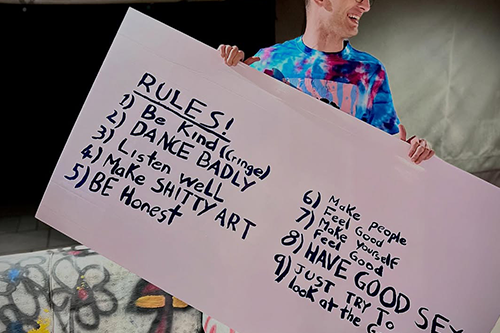 RULES!
1) Be Kind (Cringe)
2) DANCE BADLY
3) Listen well
4) Make SHITTY ART
5) BE Honest
6) Make people
Feel Good
7) Make yourself
Feel Good
8) HAVE GOOD SEX
9) JUST TRY TO
look at the